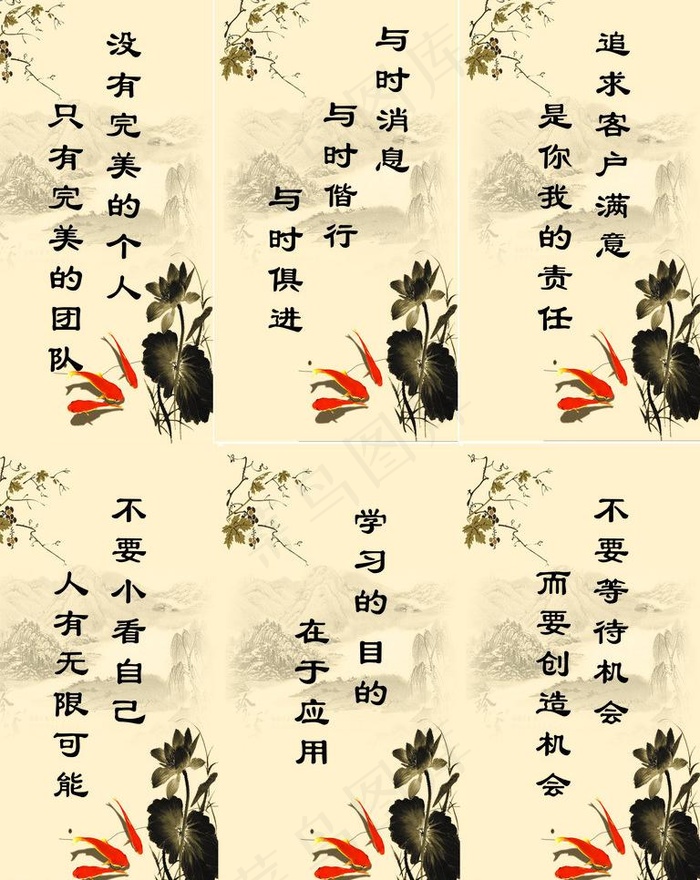 没有完美的个人
只有完美的团队
与时消息
与时偕行
与时俱进
追求客户满意
是你我的责任
不要小看自己
人有无限可能
学习的目的
在于应用
不要等待机会
而要创造机会